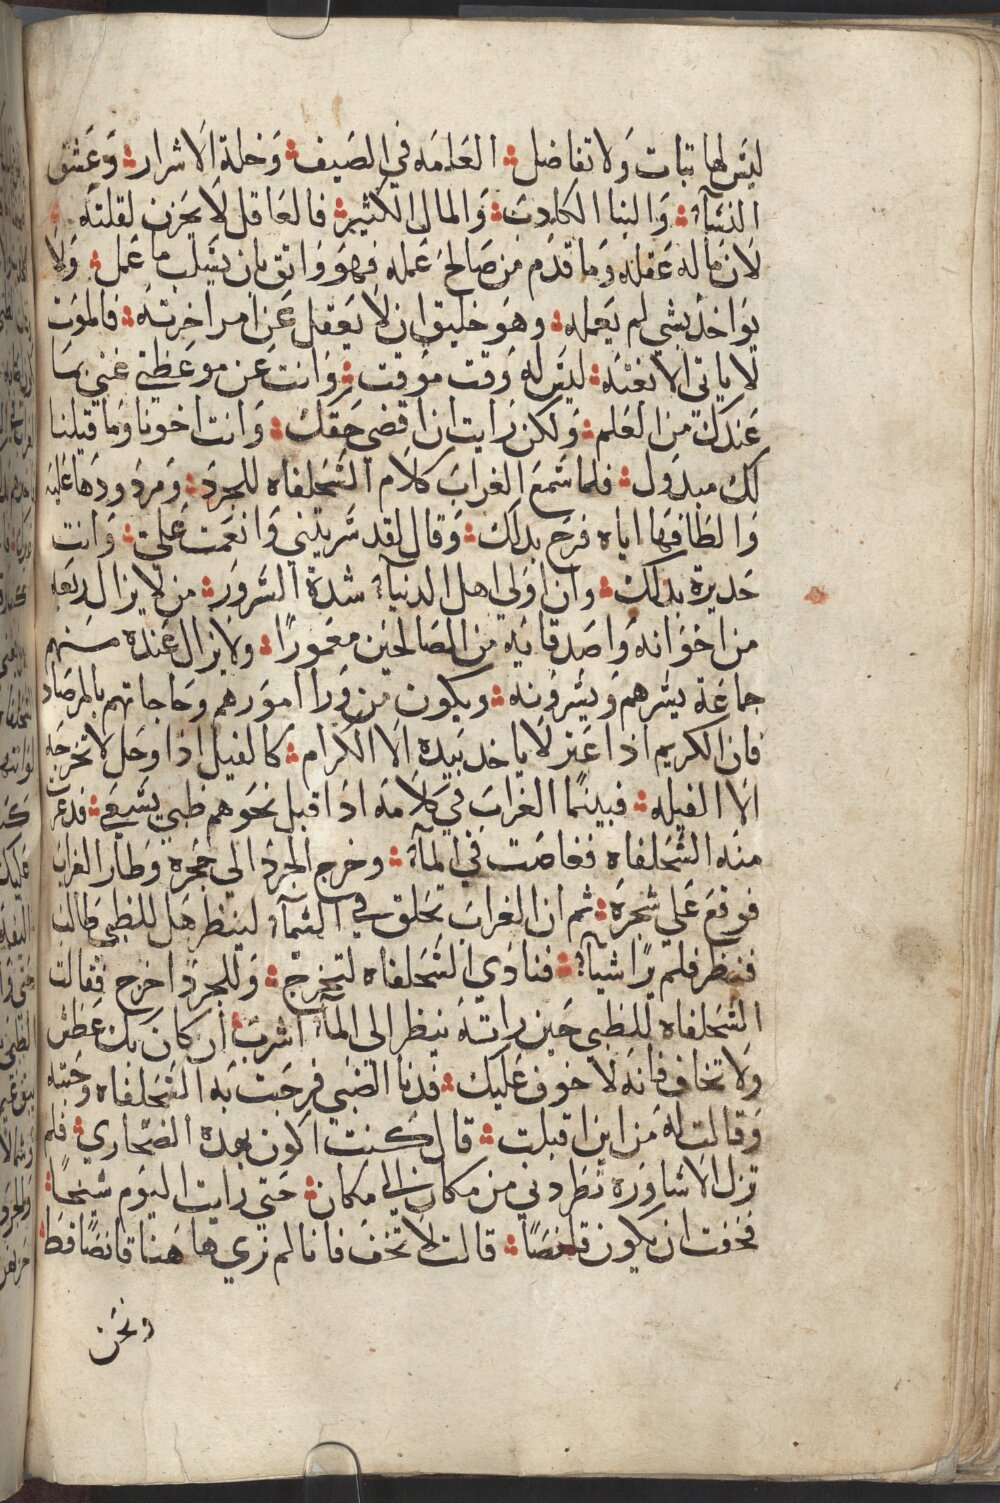 ليس لها ثبات ولا تفاضل ؞ الغمامه في الصيف ؞ وخلة الاشرار ؞ وعشق
النسآء ؞ والنبا الكادب ؞ والمال الكثير ؞ فالعاقل لا يحزن لقلته ؞
لان ماله عقله وما قدم من صالح عمله فهو واثق بان يسلب ما عمل ؞ ولا
يواخذ بشي لم يعمله ؞ وهو خليق ان لا يغفل عن امر اخرته ؞ فالموت
لا ياتي الا بغته ؞ ليس له وقت موقت ؞ وانت عن موعظتي غني بما
عندك من العلم ؞ ولكن رايت ان اقضي حقك ؞ وانت اخونا وما قبلنا
لك مبدول ؞ فلما سمع الغراب كلام السحلفاه للجرد ؞ ومردودها عليه
والطافها اياه فرح بدلك ؞ وقال لقد سريتني وانعمت علي ؞ وانت
جديرة بدلك ؞ وان اولي اهل الدنيآء شدة السرور ؞ من لا يزال ربعه
من اخوانه واصدقايه من الصالحين معمورًا ؞ ولا يزال عنده منهم
جماعة يسرهم ويسرونه ؞ ويكون من ورا امورهم وحاجاتهم بالمرصاد
فان الكريم اذا عثر لا ياخد بيده الا الكرام ؞ كالفيل اذا وحل لا تخرجه
الا الفيله ؞ فبينما الغراب في كلامه اذ اقبل نحوهم ظبي يسعي ؞ فدعرت
منه السحلفاه فغاصت في المآء ؞ وخرج الجرد الي جحره وطار الغراب
فوقع علي شجرة ؞ ثم ان الغراب تحلق في السمآء لينظر هل للظبي طالب
فنظر فلم يرا شيآء ؞ فنادي السحلفاه لتخرج ؞ وللجرد اخرج فقالت
السحلفاه للظبي حين راته ينظر الي المآء اشرب ان كان بك عطش
ولا تخاف فانه لا خوف عليك ؞ فدنا الضبي فرحبت به السحلفاه وحيته
وقالت له من اين اقبلت ؞ قال كنت اكون بهده الصحاري ؞ فلم
تزل الاشاوره تطردني من مكان الي مكان ؞ حتي رايت اليوم شبحًا ؞
فخفت ان يكون قانصًا ؞ قالت لا تخف فانا لم نري ها هنا قانصًا قط ؞
ونحن